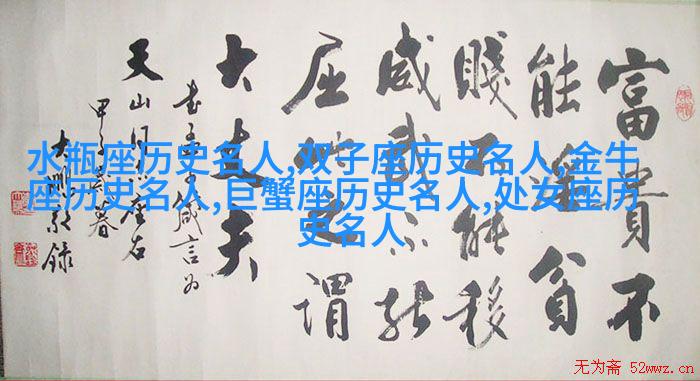 富貴不
能淫貧
賤不能移
威武不能
屈此之謂
大丈夫
書孟子箴言为
天山同志座右
甲子岁暮
水瓶座历史名人,双子座历史名人,金牛
座历史名人,巨蟹座历史名人,处女座历
史名人
无为斋 52wwz.cn